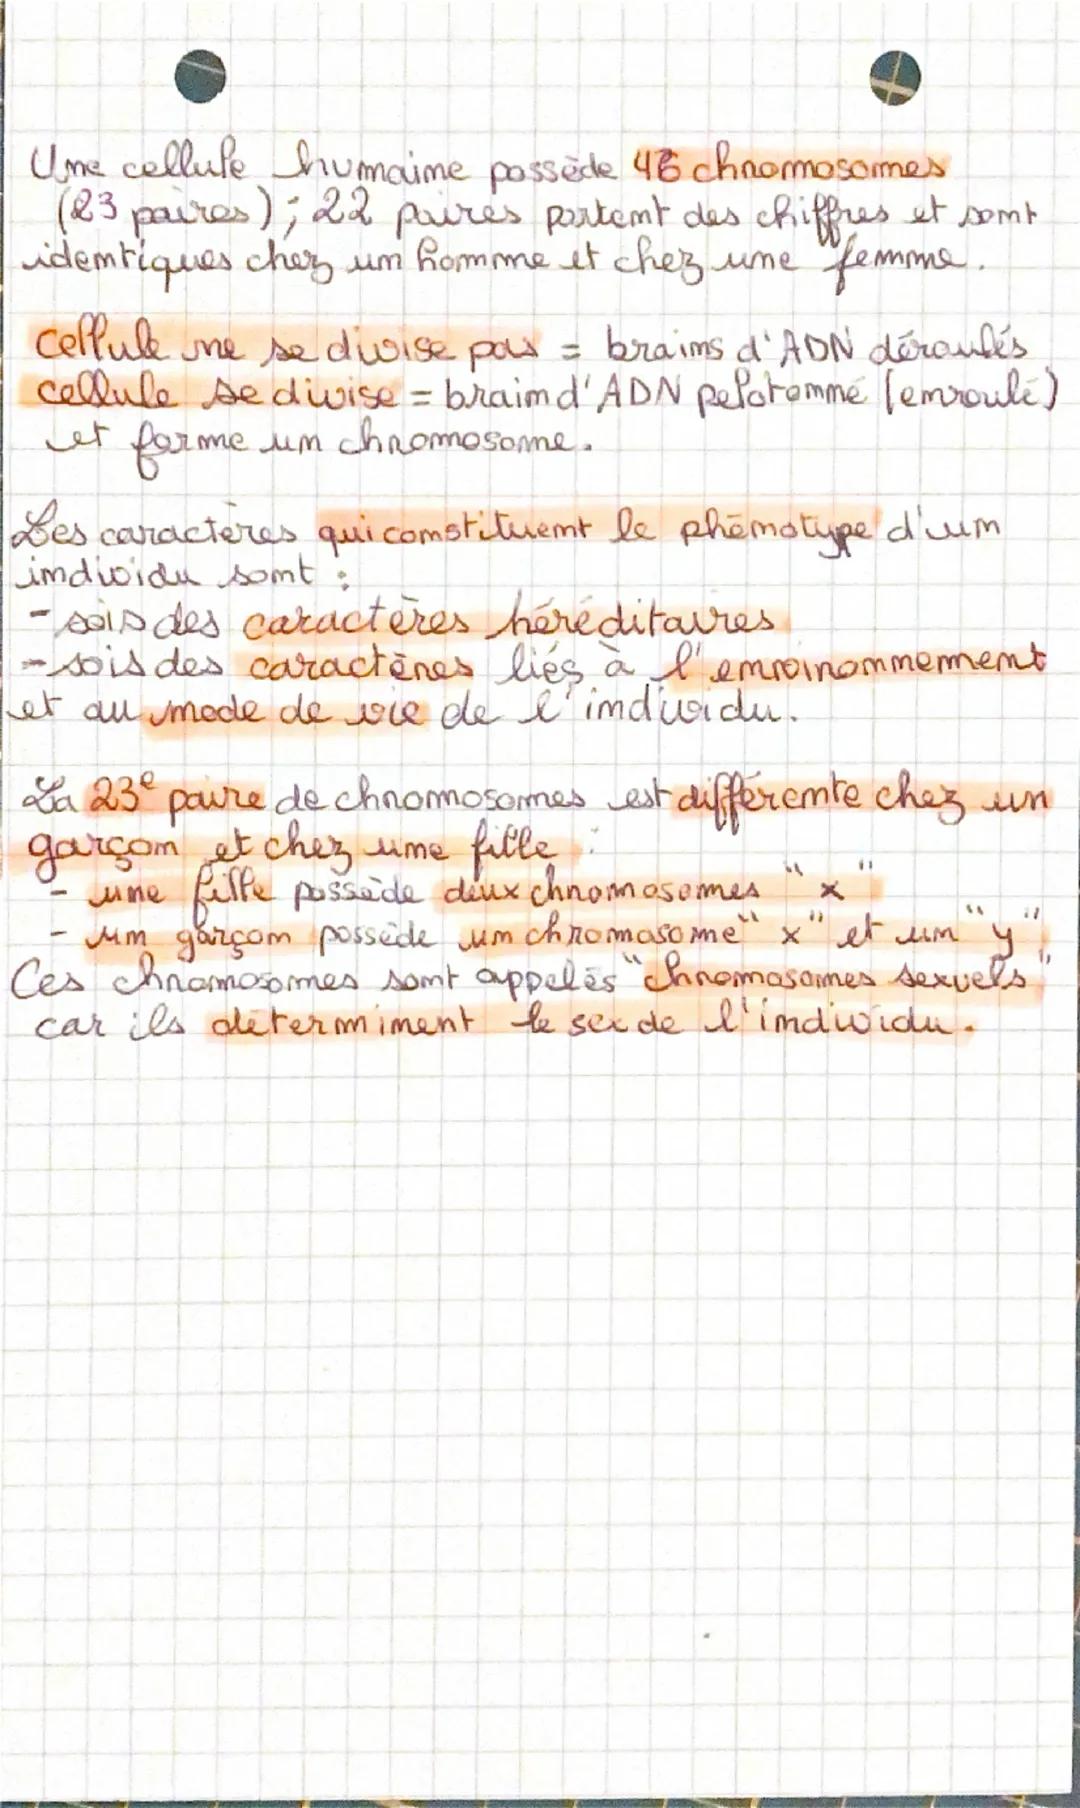 Une cellule humaine possède 46 chromosomes
(23 paires) ; 22 paires portent des chiffres et sont
identiques chez un homme et chez une femme.
cellule ne se divise pas = brains d'ADN déroulés
cellule se divise = brain d'ADN pelotonné (enroulé)
et forme un chromosome.
Les caractères qui constituent le phénotype d'un
individu sont :
- sois des caractères héréditaires
- sois des caractères liés à l'environnement
et au mode de vie de l'individu.
La 23e paire de chromosomes est différente chez un
garçon et chez une fille :
- une fille possède deux chromosomes "x"
- un garçon possède un chromosome "x" et un "y".
Ces chromosomes sont appelés "chromosomes sexuels"
car ils déterminent le sexe de l'individu.